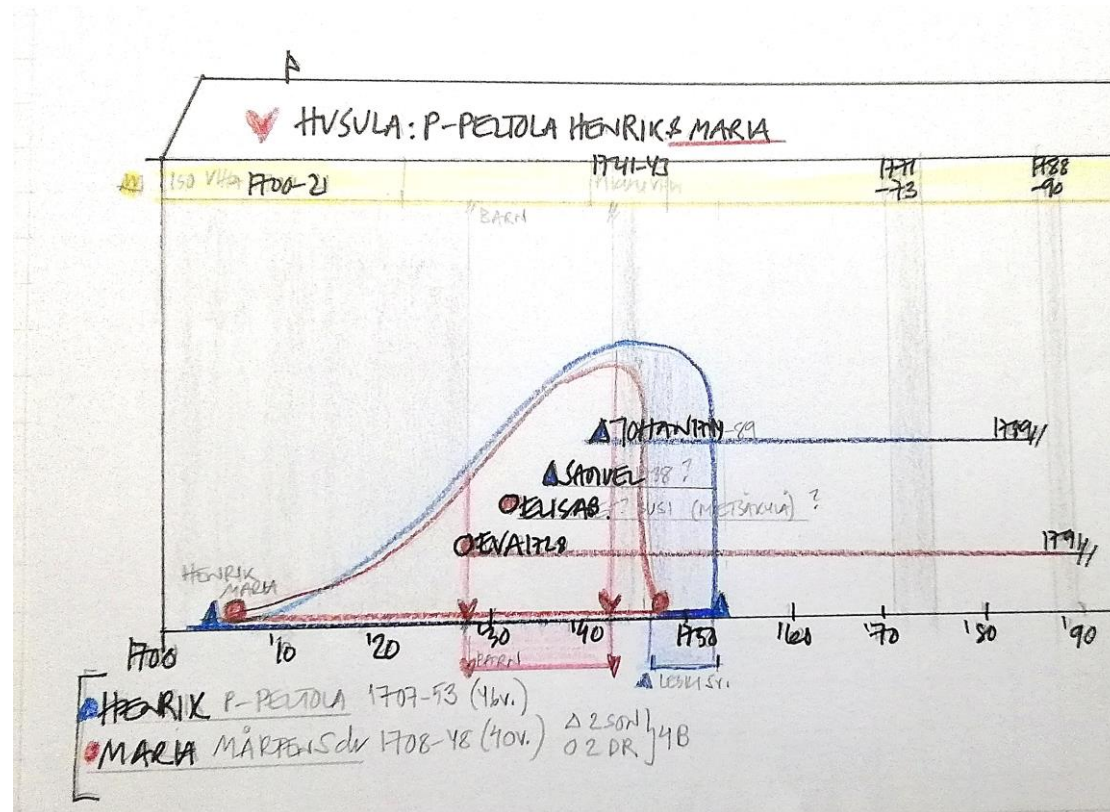 HUSULA: P-PELTOLA HENRIK & MARIA
ISO VIHA 1700-21
1741-43
1771
-73
1788
-90
BARN
JOHAN 1741-89
1789//
SAMUEL 1738 ?
ELISAB. SUSI (METSÄKYLÄ) ?
EVA 1728
1791//
HENRIK
MARIA
1700 '10 '20 '30 '40 1750 '60 '70 '80 '90
BARN
LESKI 5v.
HENRIK P-PELTOLA 1707-53 (46v.)
MARIA MÅRTENSdr 1708-48 (40v.)
2 SON
2 DR
4B